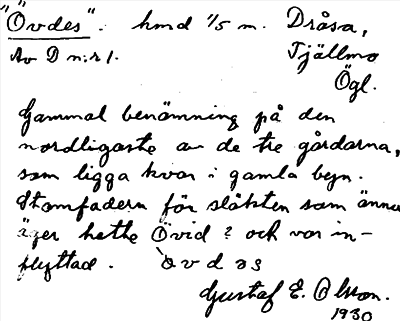 "Övdes". hmd 1/5 m. Dråsa,
Av D n:r 1. Tjällmo
Ögl.
Gammal benämning på den
nordligaste av de tre gårdarna,
som ligga kvar i gamla byn.
Stamfadern för släkten som ännu
äger hette Övid? och var in-
flyttad.
Gustaf E. Olsson.
1930